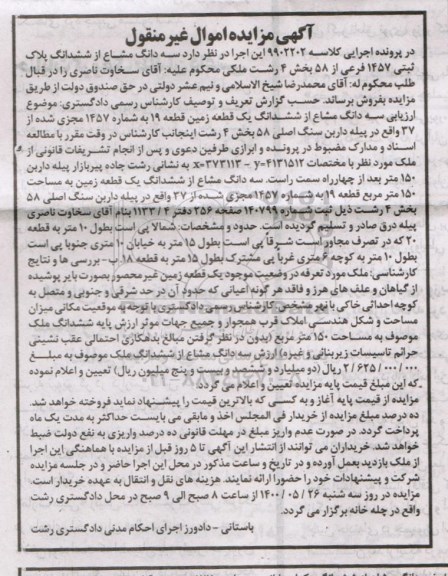 آگهی مزایده اموال غیر منقول
در پرونده اجرایی کلاسه ۹۹۰۲۲۰۲ این اجرا در نظر دارد سه دانگ مشاع از ششدانگ پلاک
ثبتی ۱۴۵۷ فرعی از ۵۸ بخش ۴ رشت ملکی محکوم علیه: آقای سخاوت ناصری را در قبال
طلب محکوم له: آقای محمدرضا شیخ الاسلامی و نیم عشر دولتی در حق صندوق دولت از طریق
مزایده بفروش برساند. حسب گزارش تعریف و توصیف کارشناس رسمی دادگستری: موضوع
ارزیابی سه دانگ مشاع از ششدانگ یک قطعه زمین قطعه ۱۹ به شماره ۱۴۵۷ مجزی شده از
۳۷ واقع در پیله داربن سنگ اصلی ۵۸ بخش ۴ رشت اینجانب کارشناس در وقت مقرر با مطالعه
اسناد و مدارک مضبوط در پرونده و ابرازی طرفین دعوی و پس از انجام تشریفات قانونی از
ملک مورد نظر با مختصات x=۳۷۳۱۱۳ – y=۴۱۳۱۵۱۲ به نشانی رشت جاده پیربازار پیله داربن
۱۵۰ متر بعد از چهارراه سمت راست. سه دانگ مشاع از ششدانگ یک قطعه زمین به مساحت
۱۵۰ متر مربع قطعه ۱۹ به شماره ۱۴۵۷ مجزی شده از ۳۷ واقع در پیله داربن سنگ اصلی ۵۸
بخش ۴ رشت ذیل ثبت شماره ۱۴۰۷۹۹ صفحه ۳۵۶ دفتر ۱۱۳۳/۴ بنام آقای سخاوت ناصری
پیله درق صادر و تسلیم گردیده است. حدود و مشخصات: شمالا پی است بطول ۱۰ متر به قطعه
۲۰ که در تصرف مجاور است شرقاً پی است بطول ۱۵ متر به خیابان ۱۰ متری جنوبا پی است
بطول ۱۰ متر به کوچه ۶ متری غرباً پی مشترک بطول ۱۵ متر به قطعه ۱۸ ب- بررسی ها و نتایج
کارشناسی: ملک مورد تعرفه در وضعیت موجود یک قطعه زمین غیر محصور بصورت بایر پوشیده
از گیاهان و علف های هرز و فاقد هر گونه اعیانی که حدود آن در حد شرقی و جنوبی و متصل به
کوچه احداثی خاکی با نهر مشخص کارشناس رسمی دادگستری با توجه به موقعیت مکانی میزان
مساحت و شکل هندسی املاک قرب همجوار و جمیع جهات موثر ارزش پایه ششدانگ ملک
موصوف به مساحت ۱۵۰ متر مربع (بدون در نظر گرفتن مبالغ بدهکاری احتمالی عقب نشینی
جرائم تاسیسات زیربنائی و غیره) ارزش سه دانگ مشاع از ششدانگ ملک موصوف به مبلغ
۲/۶۲۵/۰۰۰/۰۰۰ ریال (دو میلیارد و ششصد و بیست و پنج میلیون ریال) تعیین و اعلام نموده
که این مبلغ قیمت پایه مزایده تعیین و اعلام می گردد.
مزایده از قیمت پایه آغاز و به کسی که بالاترین قیمت را پیشنهاد نماید فروخته خواهد شد.
ده درصد مبلغ مزایده از خریدار فی المجلس اخذ و مابقی می بایست حداکثر به مدت یک ماه
پرداخت گردد. در صورت عدم واریز مبلغ در مهلت قانونی ده درصد واریزی به نفع دولت ضبط
خواهد شد. خریداران می توانند از انتشار این آگهی تا ۵ روز قبل از مزایده با هماهنگی این اجرا
از ملک بازدید بعمل آورده و در تاریخ و ساعت مذکور در محل این اجرا حاضر و در جلسه مزایده
شرکت و پیشنهادات خود را حضورا ارائه نمایند. هزینه های نقل و انتقال به عهده خریدار است.
مزایده در روز سه شنبه ۲۶ / ۰۵ / ۱۴۰۰ از ساعت ۸ صبح الی ۹ صبح در محل دادگستری رشت
واقع در چله خانه برگزار می گردد.
باستانی – دادورز اجرای احکام مدنی دادگستری رشت